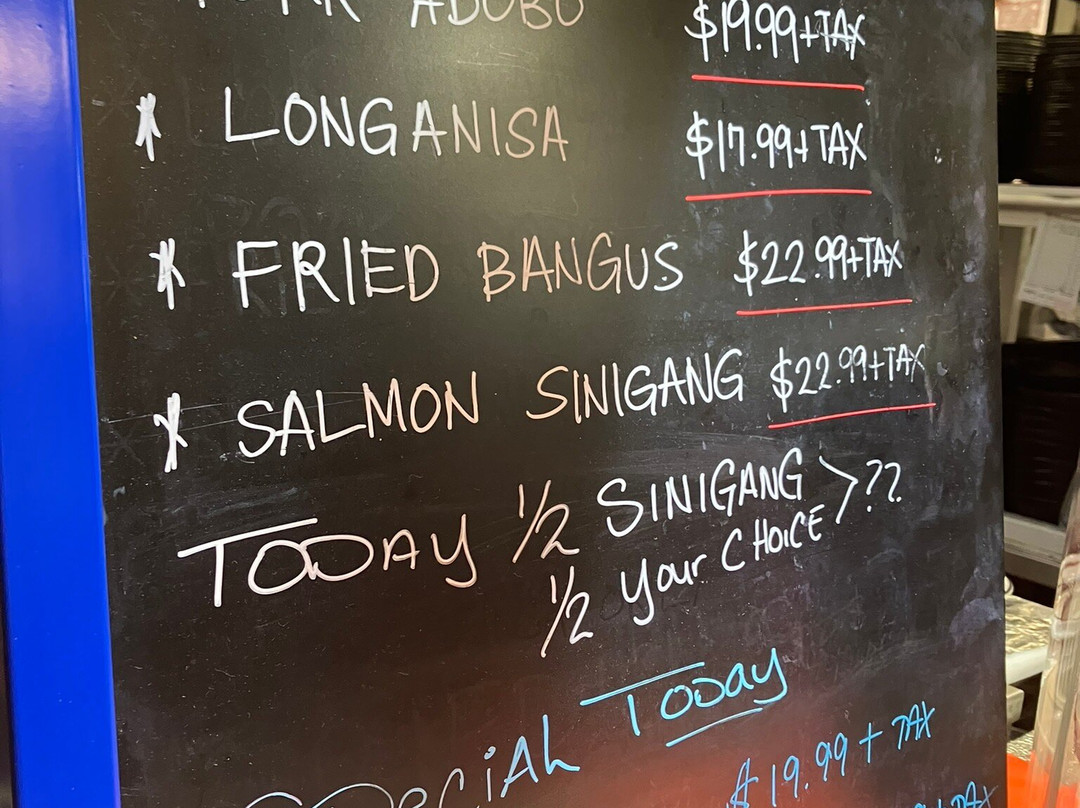 ADOBO $19.99+TAX
* LONGANISA $17.99+TAX
* FRIED BANGUS $22.99+TAX
* SALMON SINIGANG $22.99+TAX
TODAY 1/2 SINIGANG >??
1/2 Your CHOICE
SPECiAL Today
$19.99 + TAX
+TAX